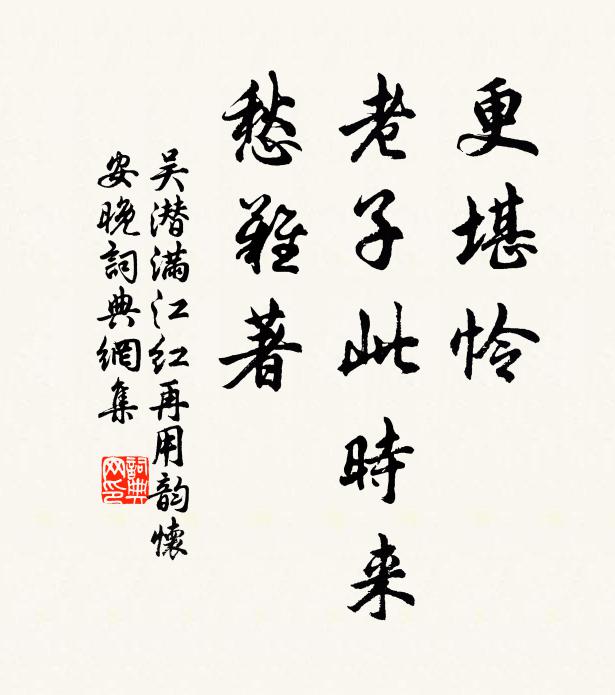 更堪怜
老子此時来
愁難著
吴潜满江红再用韵懷
安晚詞典網集
詞典网印